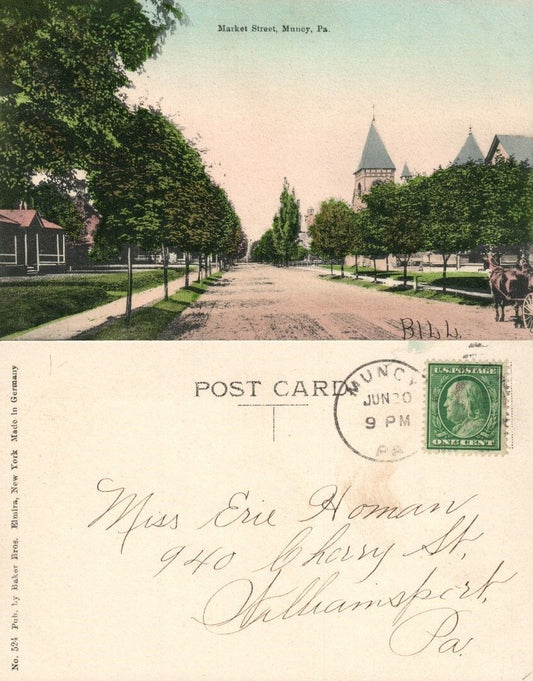 Market Street, Muncy, Pa.
BILL
POST CARD
MUNCY
JUN 20
9 PM
PA.
U.S. POSTAGE
ONE 1 CENT
Miss Erie Homan
940 Cherry St,
Williamsport,
Pa.
No. 524 Pub. by Baker Bros. Elmira, New York Made in Germany